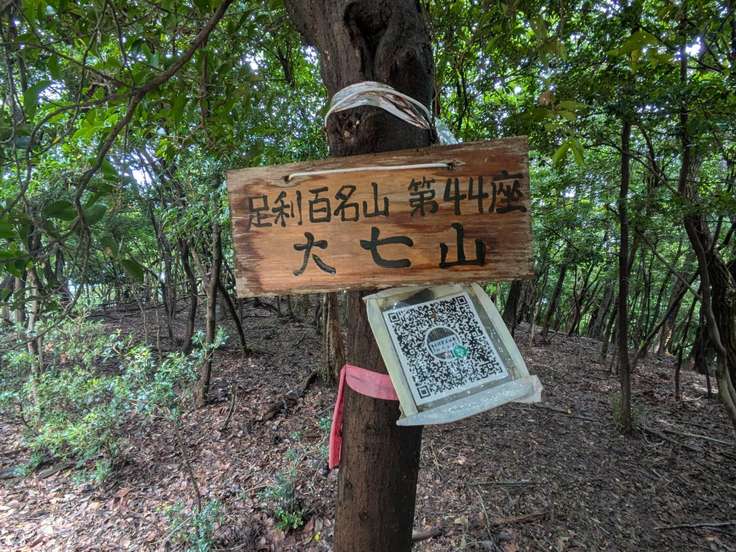 足利百名山 第44座
大七山